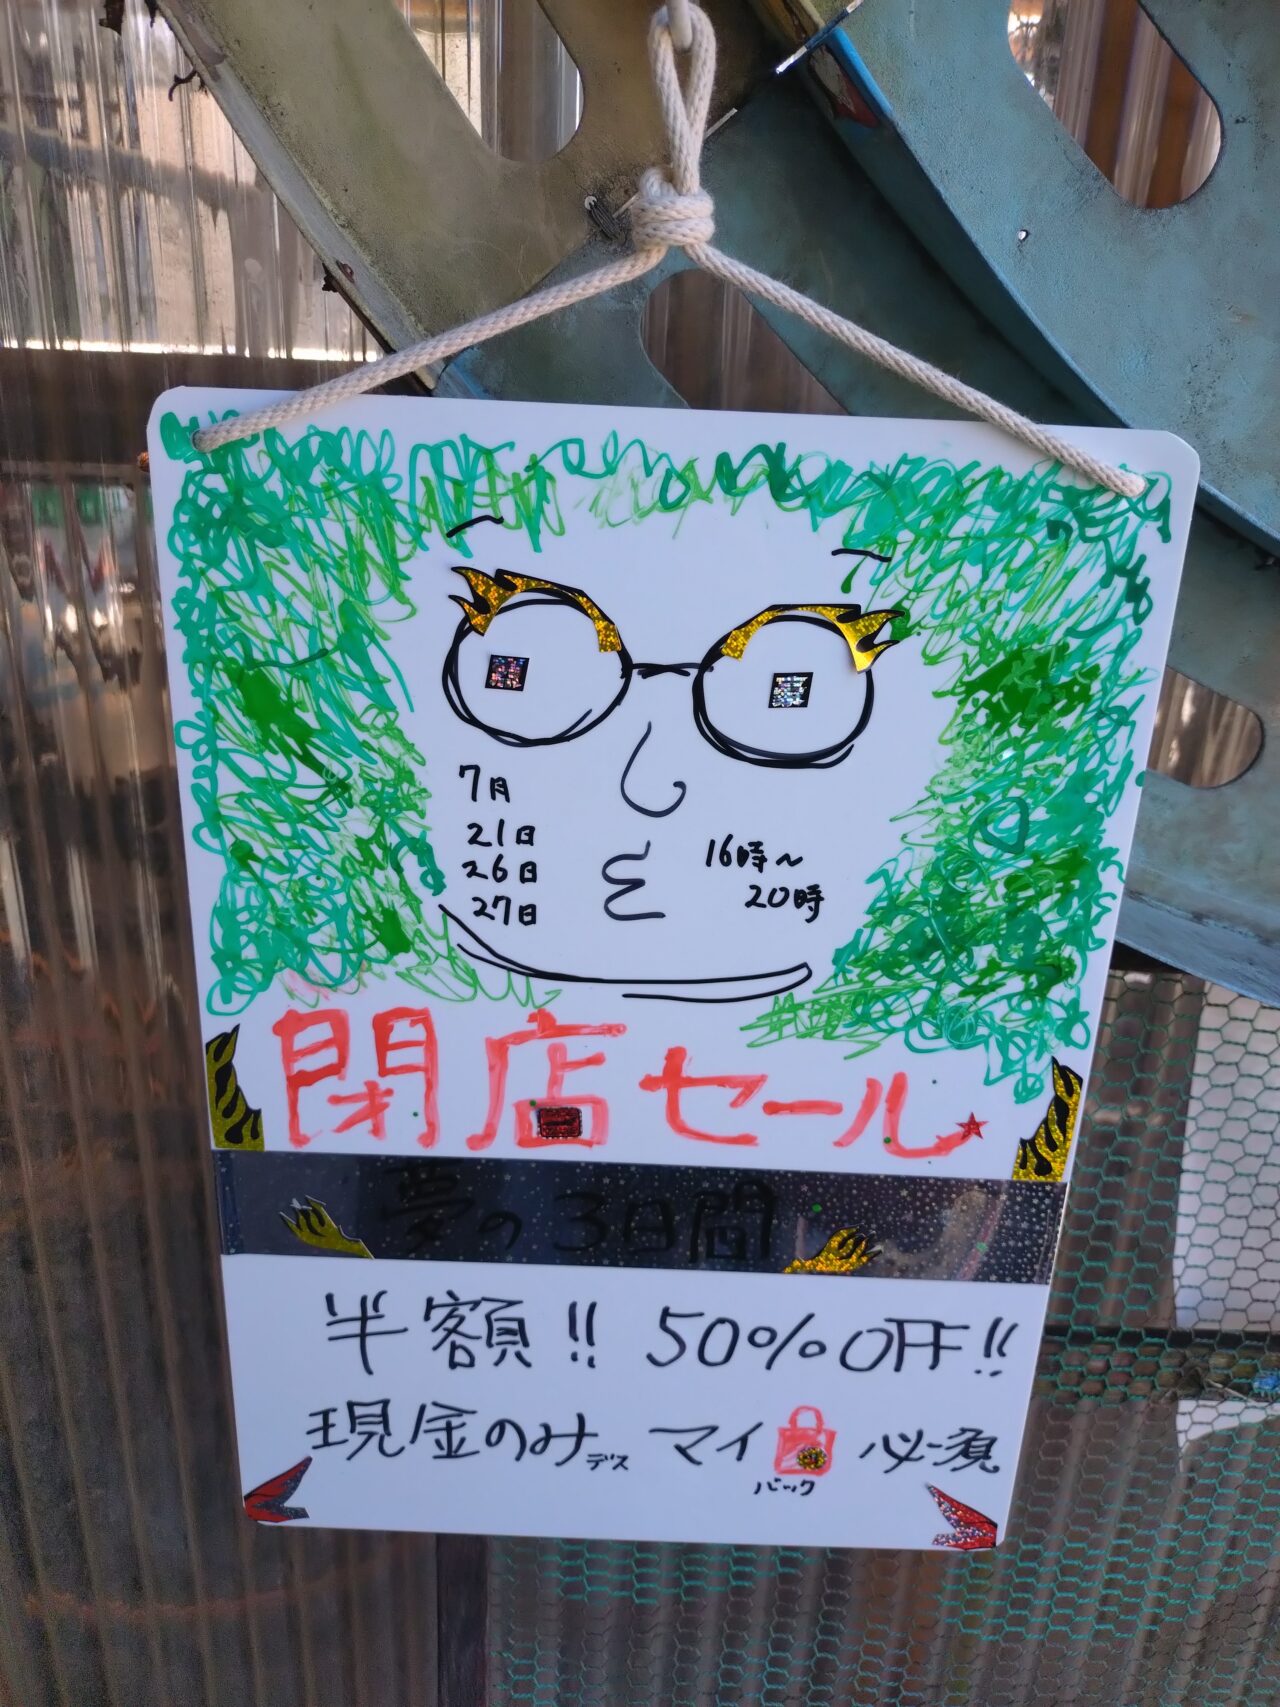 7月
21日
26日
27日
16時～
20時
閉店セール
夢の3日間
半額!! 50%OFF!!
現金のみデス マイバック必須